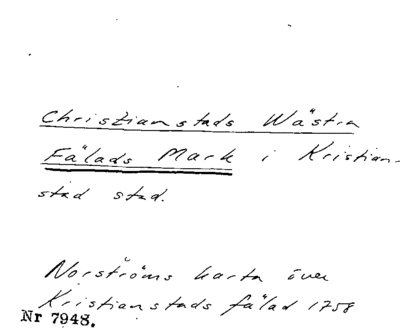 Christianstads Wästra
Fälads Mark i Kristian-
stad stad.
Norströms karta över
Kristianstads fälad 1758
Nr 7948.